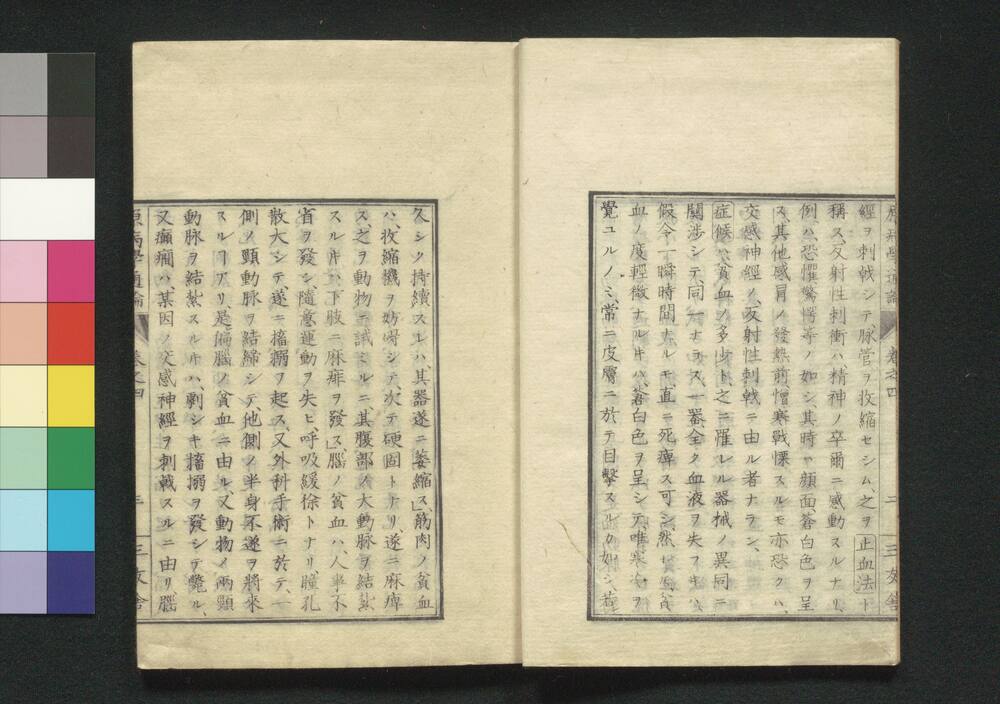 原病學通論 卷之四 二 三友舍
經ヲ刺戟シテ、脉管ヲ收縮セシム、之ヲ止血法ト
稱ス、反射性刺衝ハ精神ノ卒爾ニ感動スルナリ、
例ハ恐懼驚愕等ノ如シ、其時ハ顔面蒼白色ヲ呈
ス、其他感冒ノ發熱前、憎寒戰慄スルモ亦恐クハ、
交感神經ノ反射性刺戟ニ由ル者ナラン、
症候ハ貧血ノ多少ト、之ニ罹レル器械ノ異同ニ
關渉シテ、同一ナラス、一器全ク血液ヲ失フキハ、
假令一瞬時間ナルモ、直ニ死痺ス可シ、然レ𪜈貧
血ノ度輕微ナルキハ、蒼白色ヲ呈シテ、唯寒冷ヲ
覺ユルノミ、常ニ皮膚ニ於テ目擊スルカ如シ、若
久シク持續スレハ、其器遂ニ萎縮ス、筋肉ノ貧血
ハ、收縮機ヲ妨碍シテ、次テ硬固トナリ、遂ニ麻痺
ス、之ヲ動物ニ試ミルニ其腹部ノ大動脉ヲ結紮
スルキハ、下肢ニ麻痺ヲ發ス」腦ノ貧血ハ、人事不
省ヲ發シ隨意運動ヲ失ヒ、呼吸緩徐トナリ、瞳孔
散大シテ、遂ニ搐搦ヲ起ス、又外科手術ニ於テ、一
側ノ頸動脉ヲ結締シテ他側ノ半身不遂ヲ將來
スルヿアリ、是偏腦ノ貧血ニ由ル、又動物ノ兩頸
動脉ヲ結紮スルキハ、劇シキ搐搦ヲ發シテ斃ル、
又癲癇ハ、某因ノ交感神經ヲ刺戟スルニ由リ腦
原病學通論 卷之四 三 三友舍